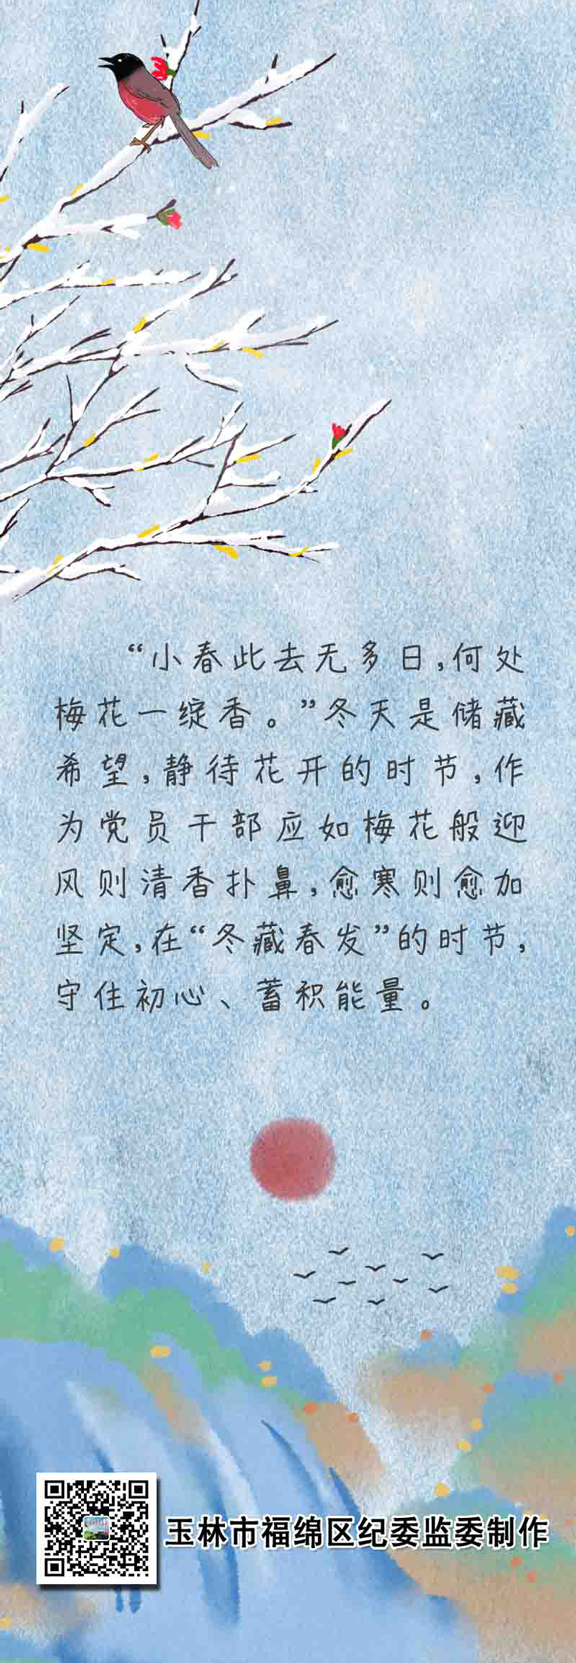 “小春此去无多日,何处
梅花一绽香。”冬天是储藏
希望,静待花开的时节,作
为党员干部应如梅花般迎
风则清香扑鼻,愈寒则愈加
坚定,在“冬藏春发”的时节,
守住初心、蓄积能量。
玉林市福绵区纪委监委制作